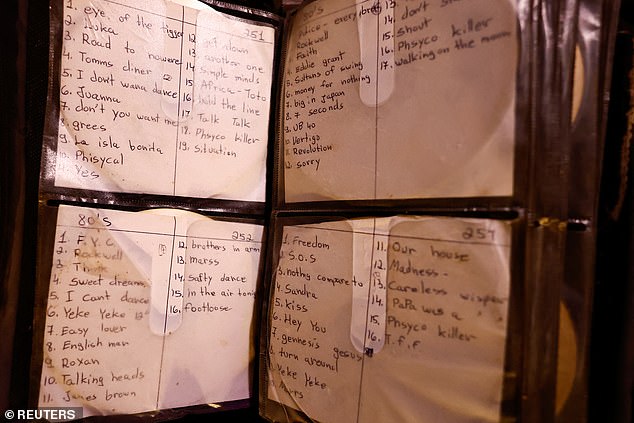 1. eye. of the tigger
251
2. Luka
3. Road to nowere
4. Tomms diner
5. I dont wana dance
6. Juanna
7. don't you want me
8. grees
9. La isla bonita
10. Phisycal
11. Yes
12. get down
13. another one
14. Simple minds
15. Africa - Toto
16. hold the line
17. Talk Talk
18. Phsyco killer
19. Situation
80's
Police - every
Rockwell
3. Faith
4. Eddie grant
5. Sultans of swing
6. money for nothing
7. big in japan
8. 7 seconds
9. UB 40
10. Vertigo
11. Revolution
12. sorry
13.
14. don't
15. Shout
16. Phsyco killer
17. walking on the moon
80'S
252
1. F. Y. C
2. Rockwell
3.
4. Sweet dreams
5. I cant dance
6. Yeke Yeke
7. Easy lover
8. English man
9. Roxan
10. Talking heads
11. James brown
12. brothers in arm
13. marss
14. Safty dance
15. in the air tonig
16. footloose
257
1. Freedom
2. S.O.S
3. nothng compare to
4. Sandra
5. Kiss
6. Hey You
7. gennesis gesus
8. turn around
9. Yeke Yeke
11. Our house
12. Madness -
13. Careless wisper
14. PaPa was a
15. Phsyco killer
16. T.f.f
© REUTERS